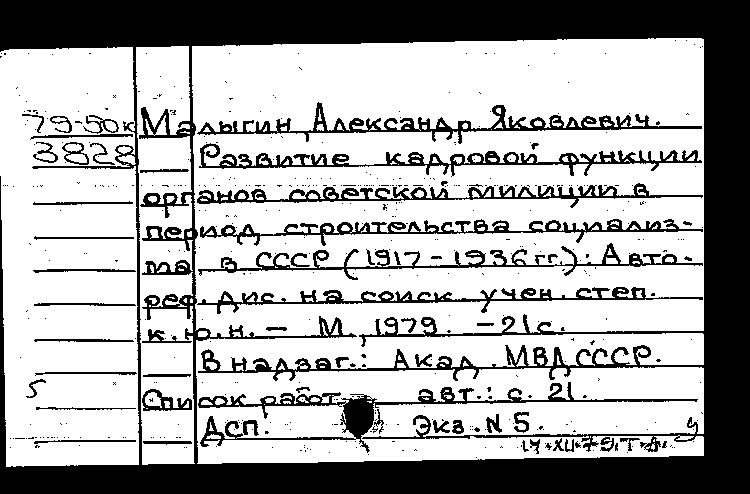 79-50к Малыгин, Александр Яковлевич.
3828 Развитие кадровой функции
органов советской милиции в
период строительства социализ-
ма в СССР (1917-1936 гг.): Авто-
реф. дис. на соиск. учен. степ.
к.ю.н. — М., 1979. - 21 с.
В надзаг.: Акад. МВД СССР.
5 Список работ авт.: с. 21.
Дсп. Экз. N 5.